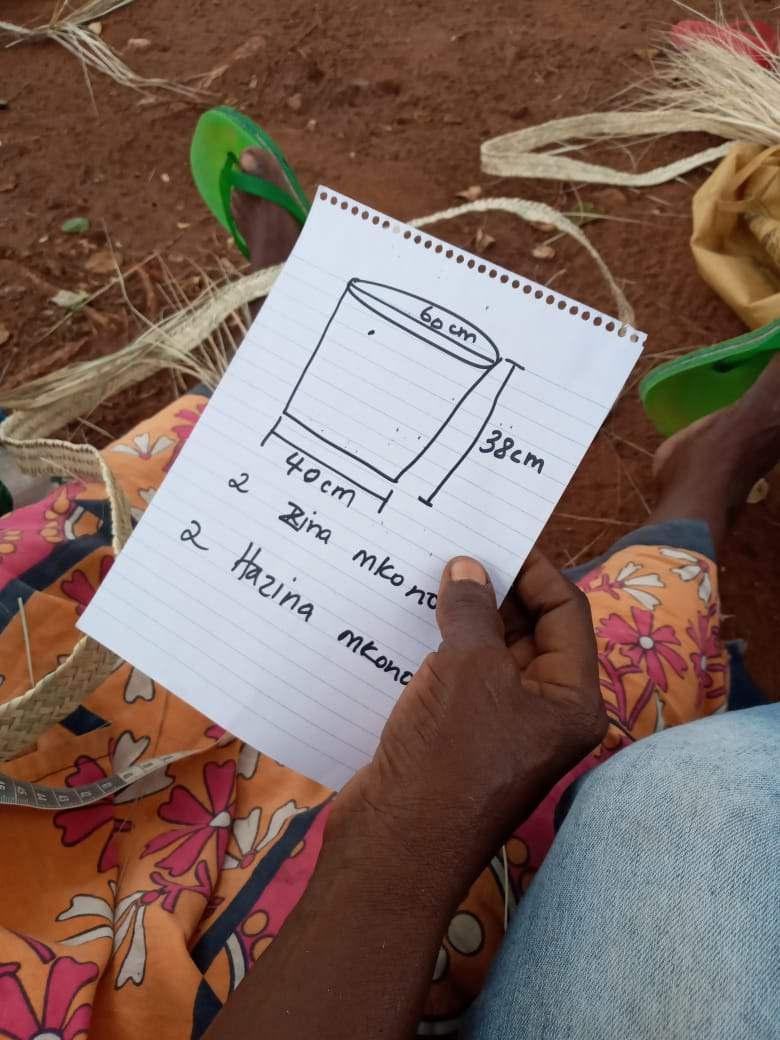 60cm
38cm
40cm
2 Zina mkono
2 Hazina mkono